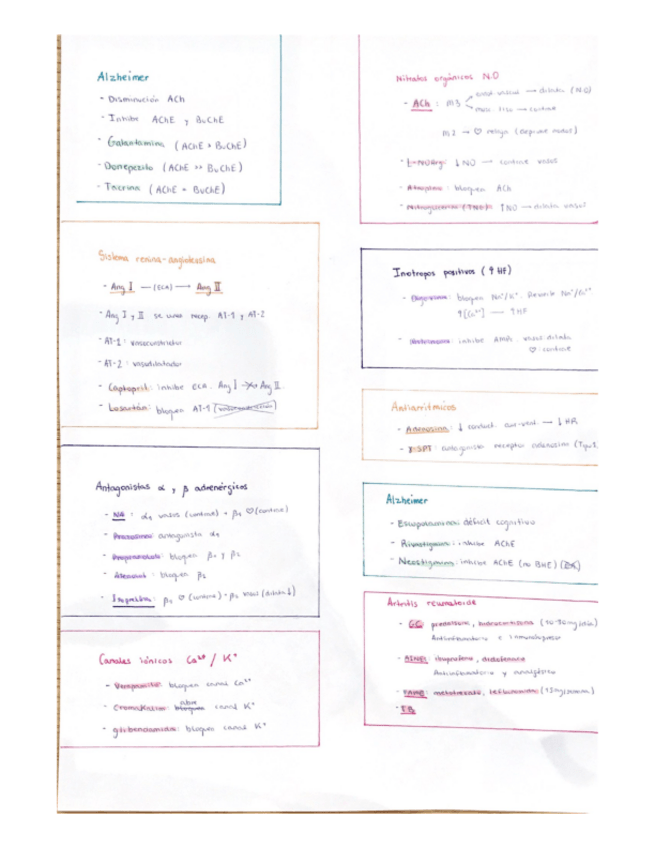 Alzheimer
- Disminución ACh
- Inhibe AChE y BuChE
- Galantamina (AChE > BuChE)
- Donepezilo (AChE >> BuChE)
- Tacrina (AChE = BuChE)
Sistema renina-angiotensina
- Ang I —(ECA)→ Ang II
- Ang I y II se unen recep. AT-1 y AT-2
- AT-1: vasoconstrictor
- AT-2: vasodilatador
- Captopril: inhibe ECA. Ang I Ang II.
- Losartán: bloquea AT-1
Antagonistas α y β adrenérgicos
- NA: α1 vasos (contrae) + β1 ♡ (contrae)
- Prazosina: antagonista α1
- Propranolol: bloquea β1 y β2
- Atenolol: bloquea
- β1 ♡ (contrae) - β2 vasos (dilata ↓)
Canales iónicos Ca²⁺ / K⁺
- Verapamilo: bloquea canal Ca²⁺
- Cromakalim: abre canal K⁺
- glibenclamida: bloquea canal K⁺
Nitratos orgánicos NO
- ACh: M3 vascul → dilata (NO)
musc. liso → contrae
M2 → ♡
↓NO → contrae vasos
- Atropina: bloquea ACh
- ↑NO → dilata vasos
Inotropos positivos (↑HF)
- Digoxina: bloquea Na⁺/K⁺. Na⁺/Ca²⁺
↑[Ca²⁺] → ↑HF
inhibe vasos dilata
♡ contrae
Antiarrítmicos
- Adenosina: ↓ conduct. aur-vent. → ↓HR
- 8-SPT: antagonista receptor adenosina
Alzheimer
- Escopolamina: déficit cognitivo
- Rivastigmina: inhibe AChE
- Neostigmina: inhibe AChE (no BHE)
Artritis reumatoide
- GC: prednisona, hidrocortisona
Antiinflamatorio e inmunosupresor
- AINE: ibuprofeno, diclofenaco
Antiinflamatorio y analgésico
- FAME: metotrexato, leflunomida
- FB